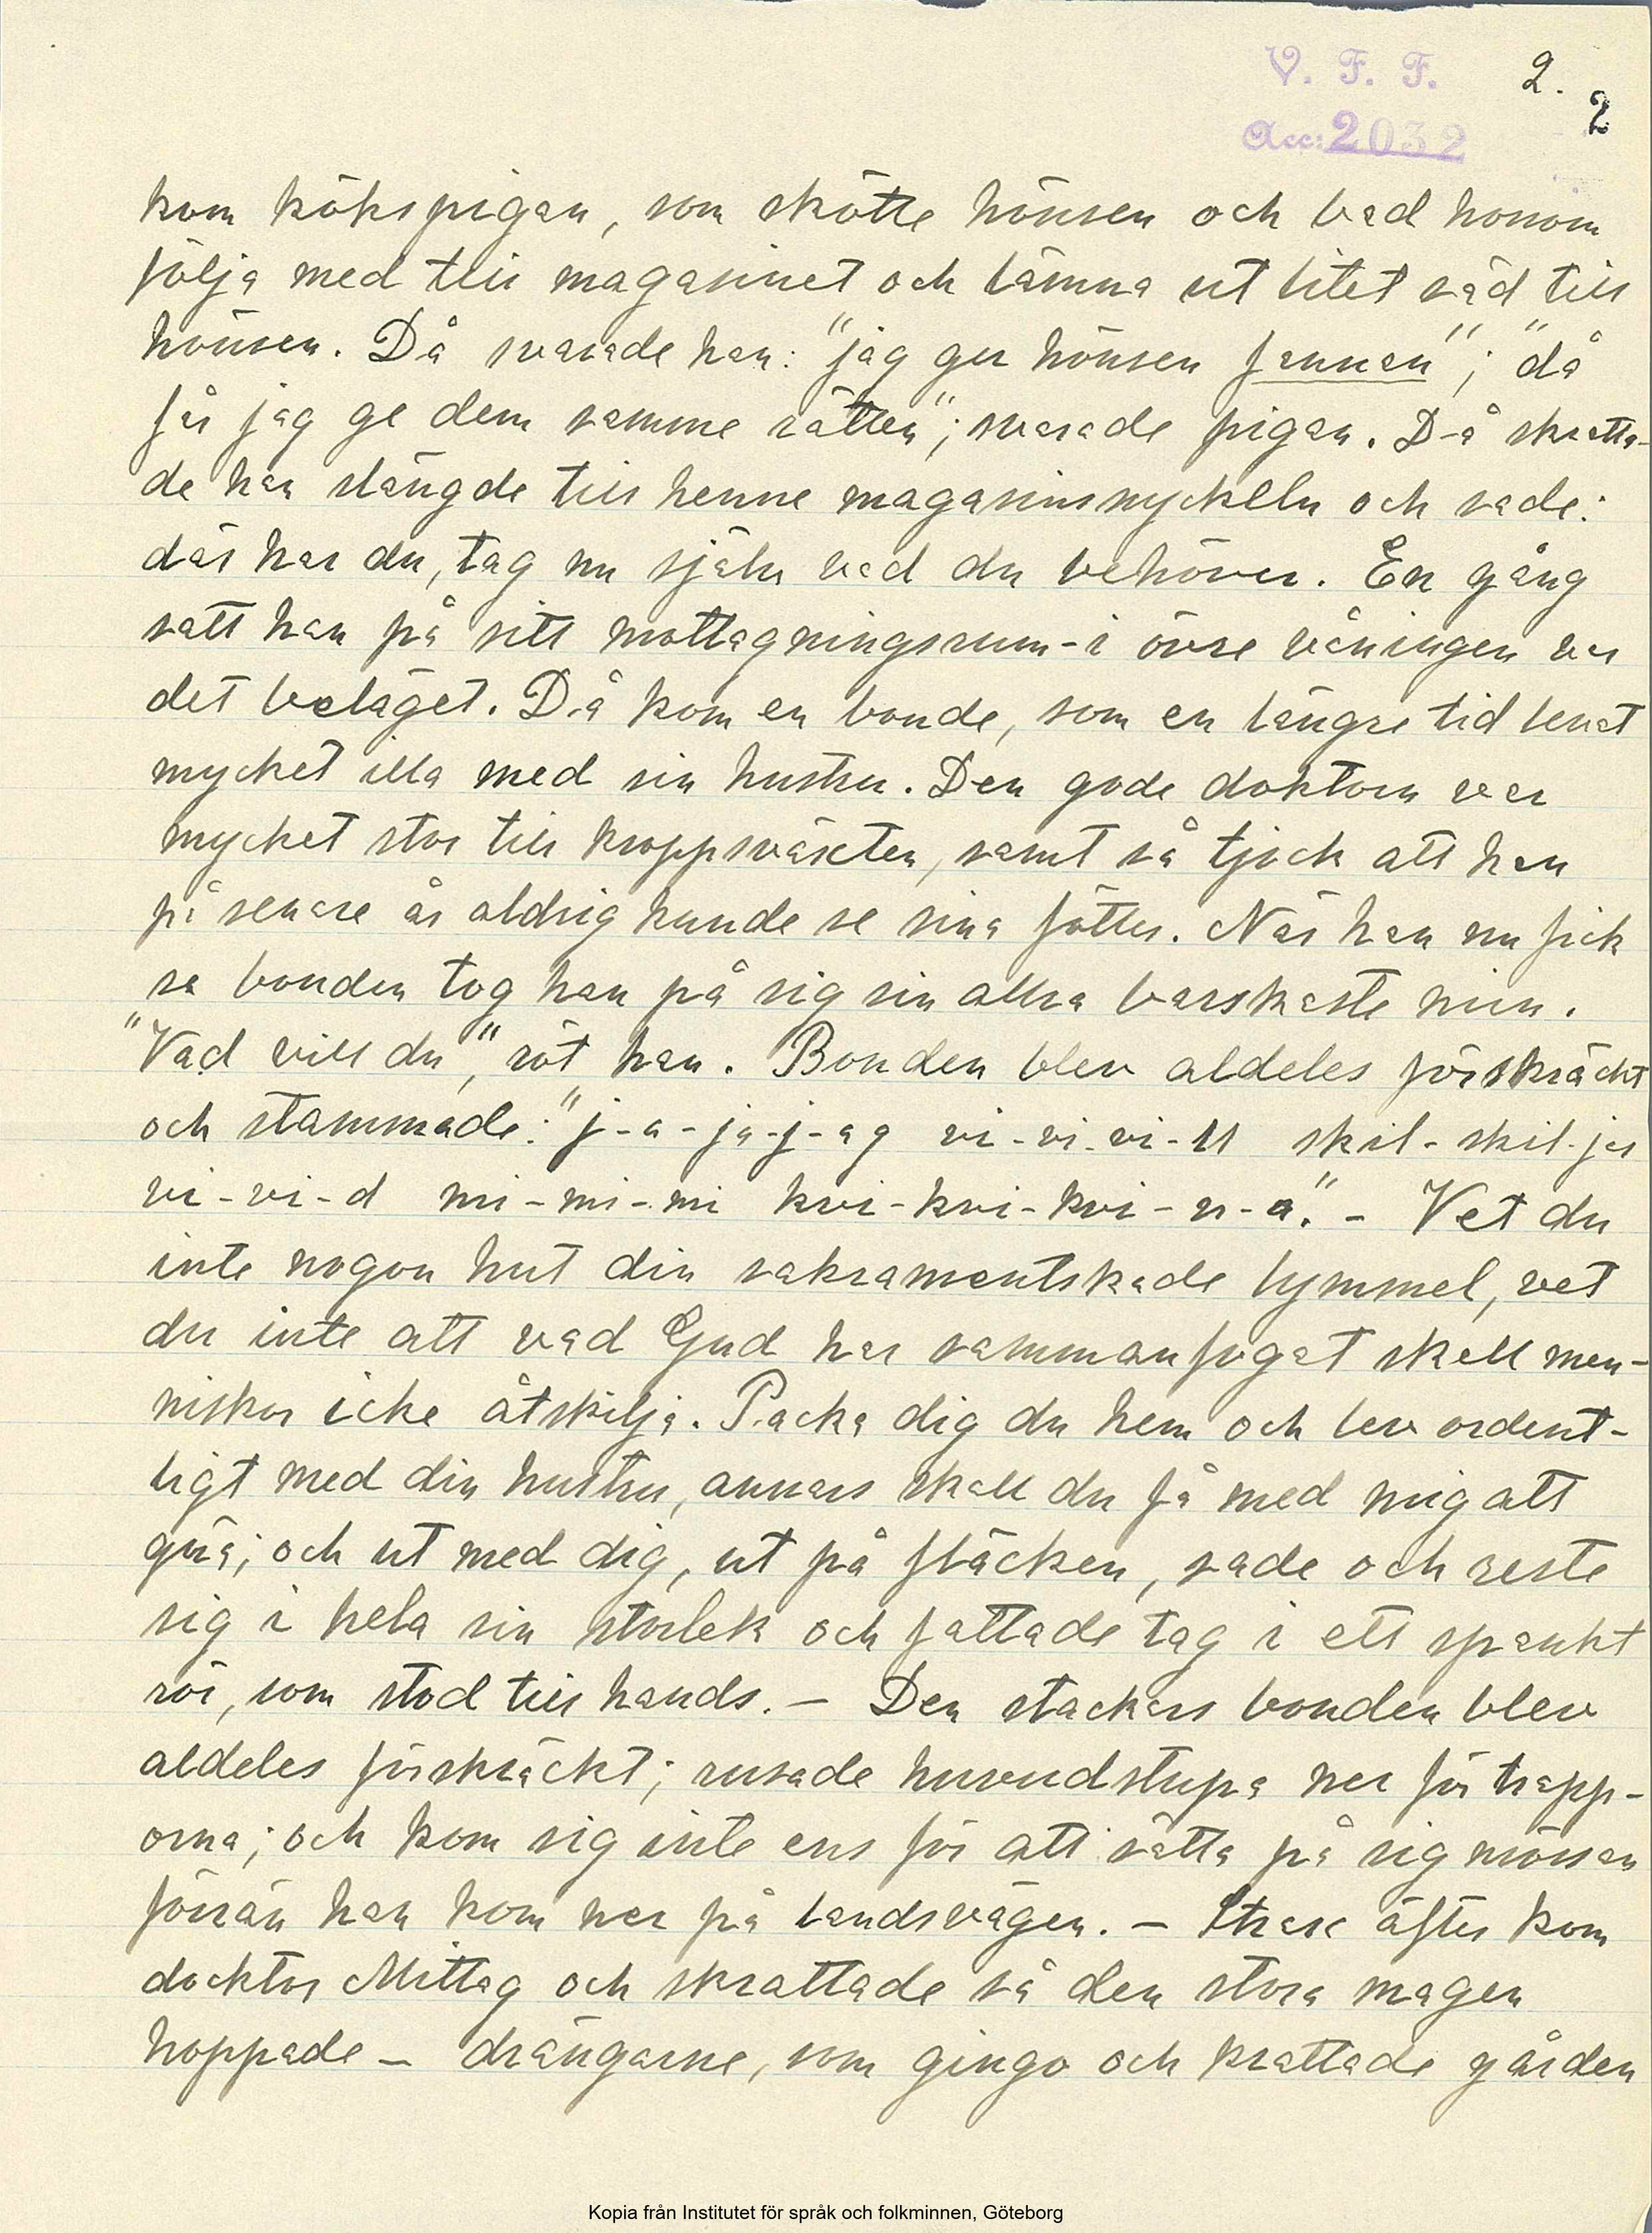 V. F. F. 2.
2
Acc: 2032
kom kökspigan, som skötte hönsen och bad honom
följa med till magasinet och lämna ut litet säd till
hönsen. Då svarade han: "jag ger hönsen fannen"; "då
får jag ge dem samme rätten"; svarade pigan. Då skratta-
de han slängde till henne magasinsnyckeln och sade:
där har du, tag nu själv vad du behöver. En gång
satt han på sitt mottagningsrum - i övre våningen var
det beläget. Då kom en bonde, som en längre tid levat
mycket illa med sin hustru. Den gode doktorn var
mycket stor till kroppsväxten, samt så tjock att han
på senare år aldrig kunde se sina fötter. När han nu fick
se bonden tog han på sig sin allra barskaste min.
"Vad vill du", röt han. Bonden blev aldeles förskräckt
och stammade: "j-a-ja-j-ag vi-vi-vi-ll skil-skil-jas
vi-vi-d mi-mi-mi kvi-kvi-kvi-n-a." - Vet du
inte nogon hut din sakramentskade lymmel, vet
du inte att vad Gud har sammanfogat skall men-
niskor icke åtskilja. Packa dig du hem och lev ordent-
ligt med din hustru, annars skall du få med mig att
göra; och ut med dig, ut på fläcken, sade och reste
sig i hela sin storlek och fattade tag i ett spankt
rör, som stod till hands. - Den stackars bonden blev
aldeles förskräckt; rusade huvudstupa ner för trapp-
orna; och kom sig inte ens för att sätta på sig mössan
förrän han kom ner på landsvägen. - Strax äfter kom
docktor Mittag och skrattade så den stora magen
hoppade - drängarne, som gingo och krattade gården
Kopia från Institutet för språk och folkminnen, Göteborg